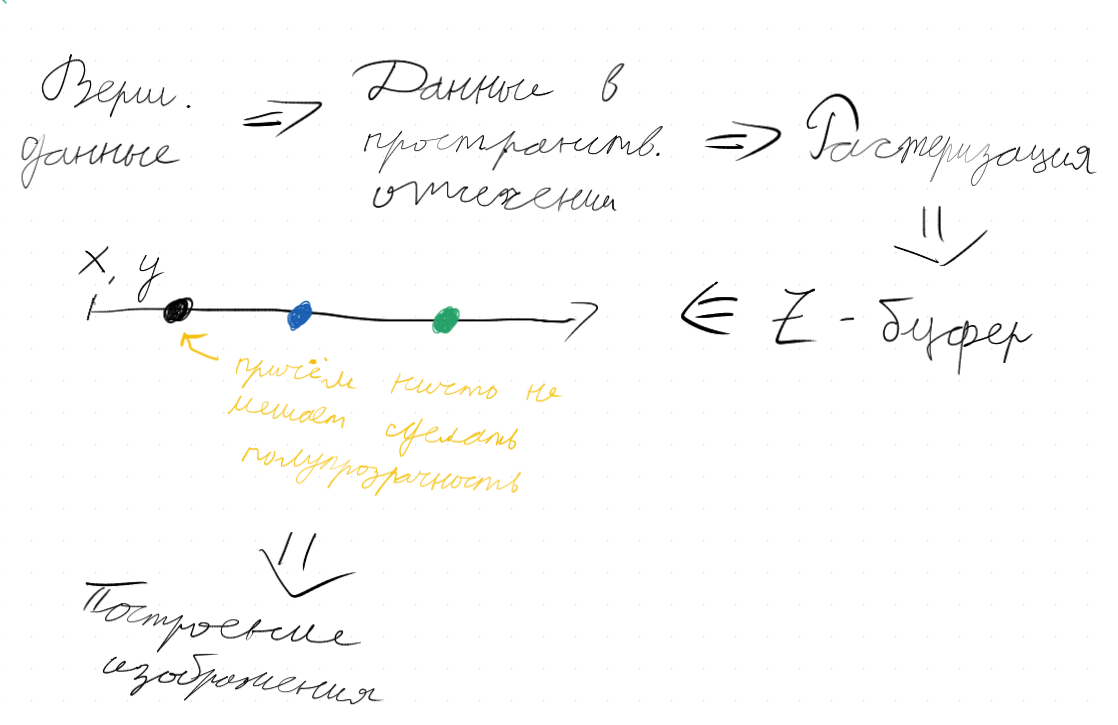 Верш.
данные
Данные в
пространств.
отсечении
Растеризация
Z - буфер
x, y
причём ничто не
мешает сделать
полупрозрачность
Построение
изображения